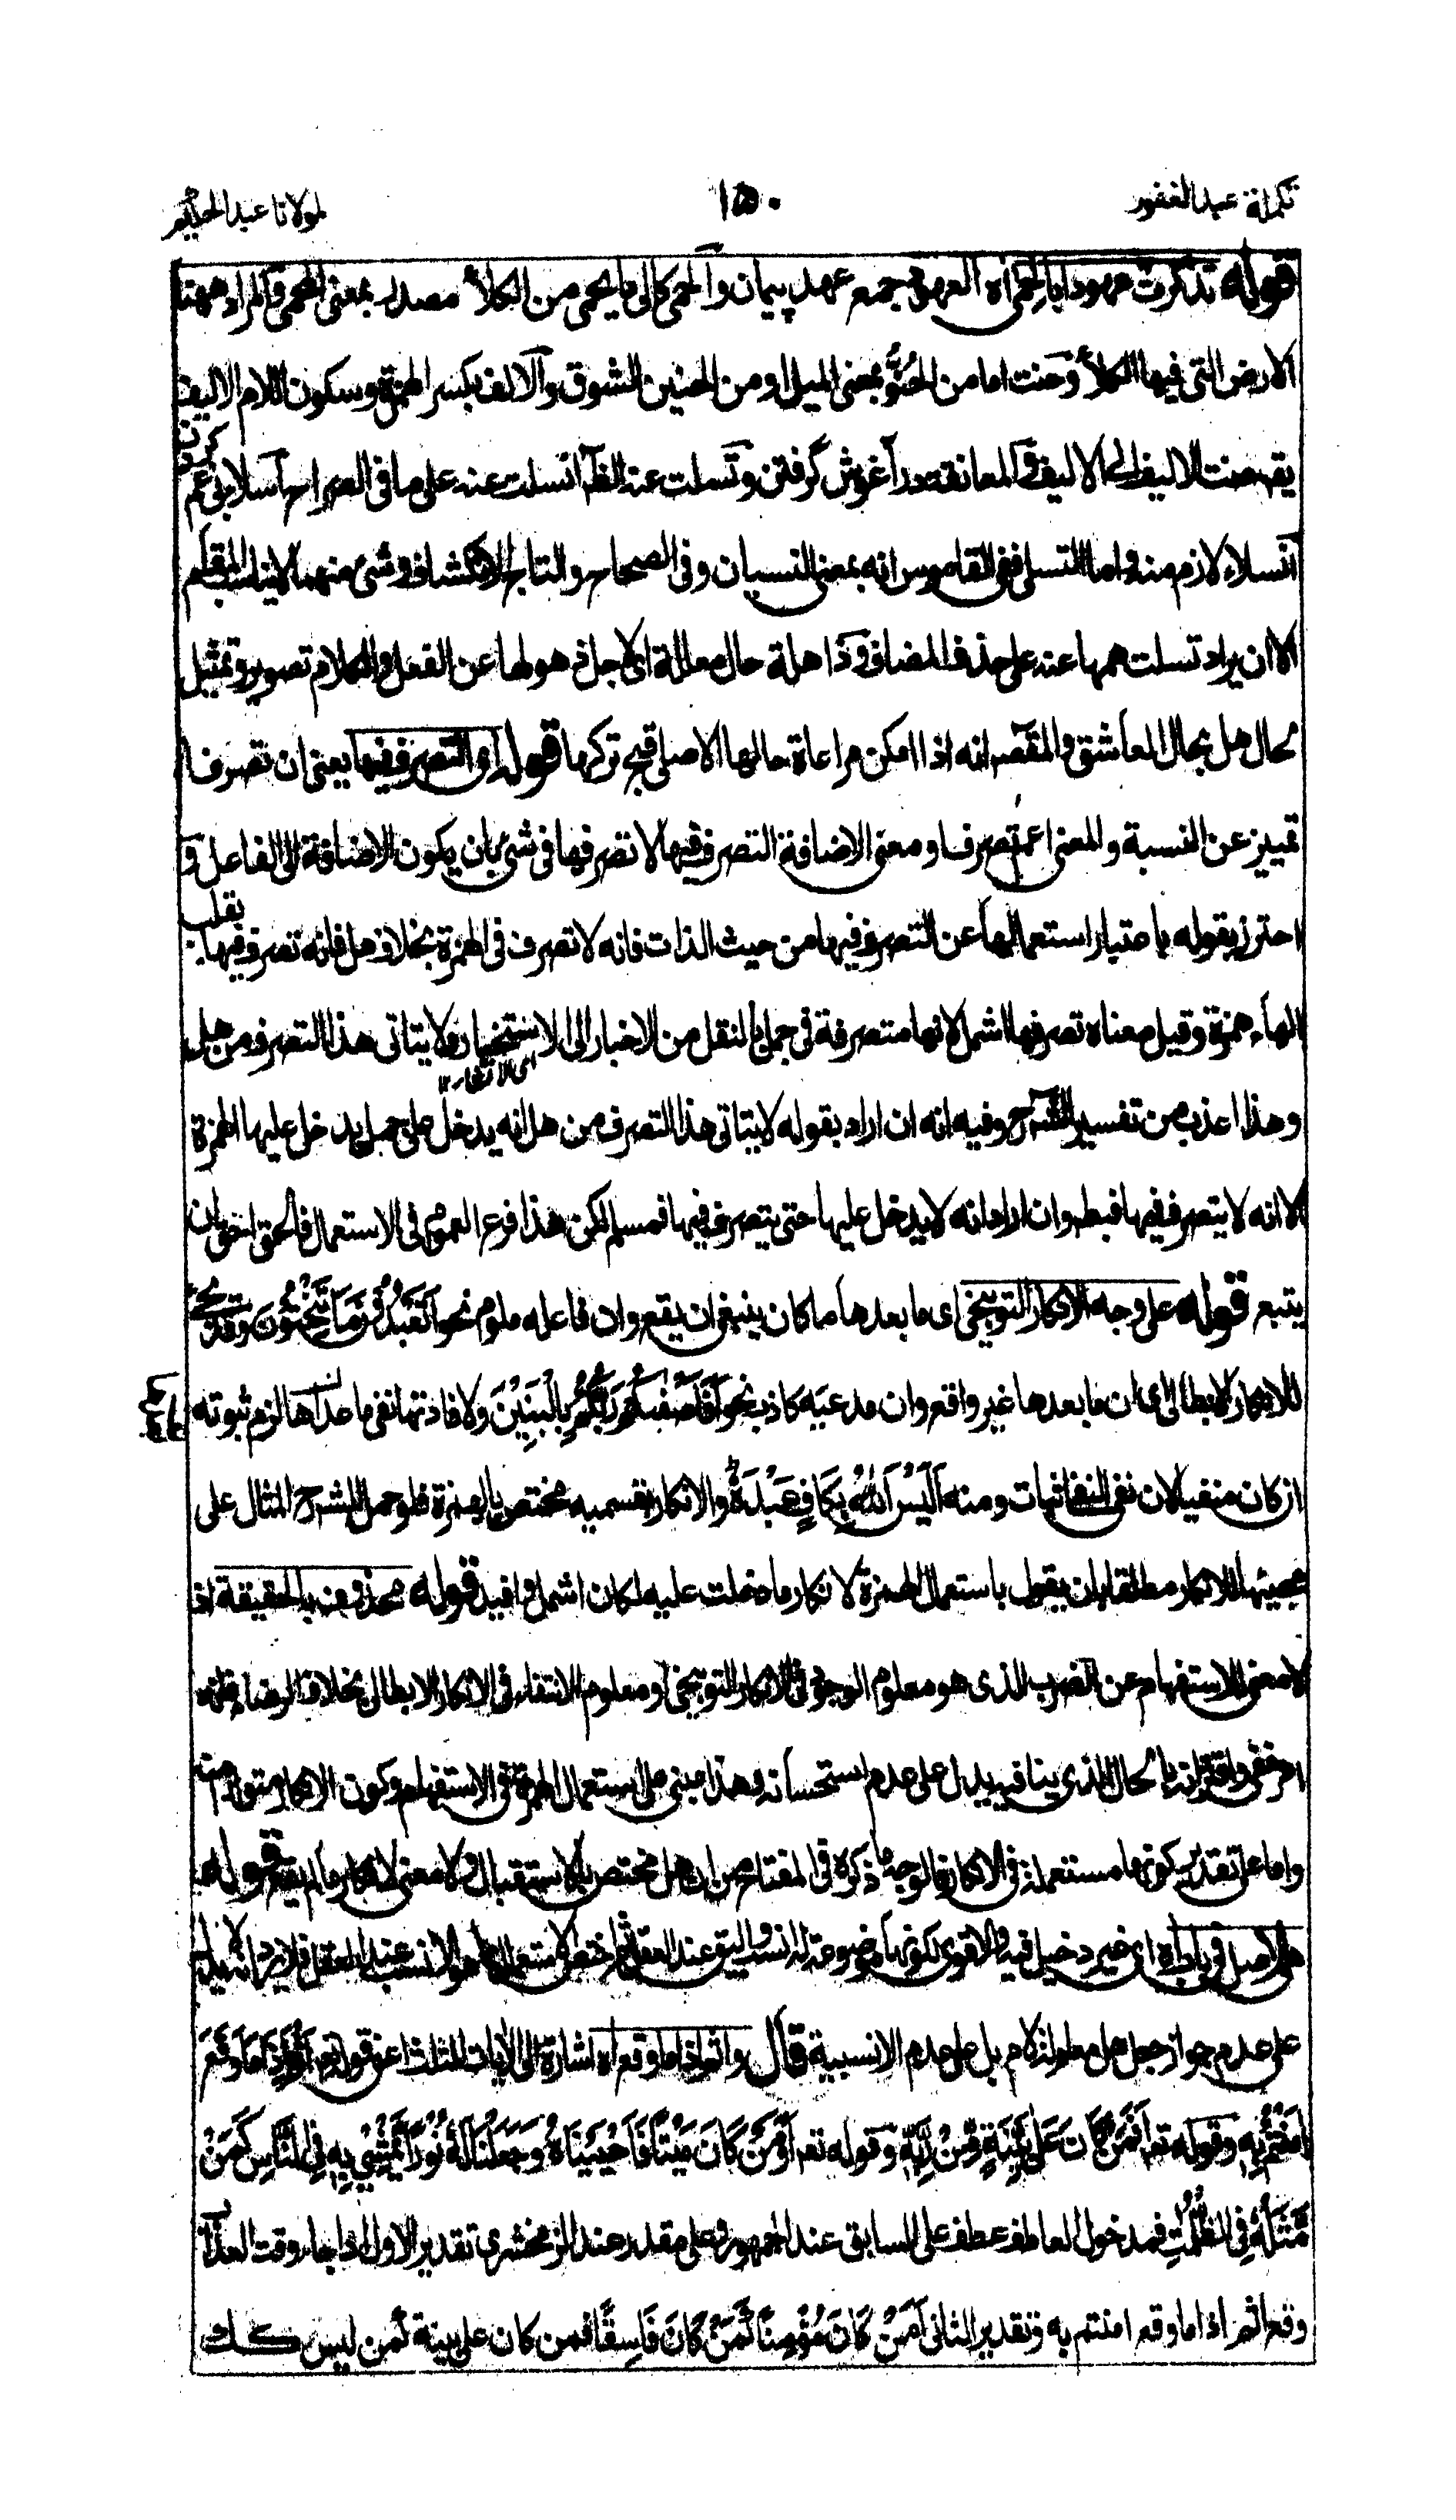 تكملة عبد الغفور
١٥٠
لمولانا عبد الحكيم
قوله تذكرت عهودا بالحمى اه العهود جمع عهد پيمان والحمى كالى ما يحمى من الكلأ مصدر بمعنى المحمى والمراد ههنا
الارض التى فيها الكلأ وحنت اما من الحنو بمعنى الميل او من الحنين الشوق والالف بكسر الهمزة وسكون اللام الاليف
يقـ حنت الاليف الى الاليف والمعانقة در آغوش گرفتن وتسلت عنه الظـ انسلت عنه على ما فى الصراح اسلا بى غم كردن
انسلاء لازم منه واما التسلى ففى القاموس انه بمعنى النسيان وفى الصحاح والتاج الانكشاف وشئ منهما لا يناسب المقام
الا ان يراد تسلت همها عنه على حذف المضاف وذاهلة حال معللة اى لاجل ذهولها عن الفعل والكلام تصوير وتمثيل
لحال هل بحال المعاشق والمقصـ انه اذا امكن مراعاة حالها الاصلى قبح تركها قوله او التصرف فيها يعنى ان تصرفا
تمييز عن النسبة والمعنى اعم تصرفا ومعنى الاضافة التصرف فيها لا تصرفها فى شئ بان يكون الاضافة الى الفاعل و
احترز بقوله باعتبار استعمالها عن التصرف فيها من حيث الذات فانه لا تصرف فى الهمزة بخلاف هل فانه تصرف فيها بقلب
الهاء همزة وقيل معناه تصرفها اشمل لانها متصرفة فى جملة بالنقل من الاخبار الى الاستخبار ولا يتاتى هذا التصرف من هل
اى الانكار ١٢
وهذا اعذب من تفسير الشرح وفيه انه ان اراد بقوله لا يتاتى هذا التصرف من هل انه يدخل على جمل يدخل عليها الهمزة
الا انه لا يتصرف فيها فبطـ وان اراد انه لا يدخل عليها حتى يتصرف فيها فمسلم لكن هذا فرع العموم فى الاستعمال فالحق احق ان
يتبع قوله على وجه الانكار التوبيخى اى ما بعدها ما كان ينبغى ان يقع وان فاعله ملوم نحو اَتَعْبُدُوْنَ مَا تَنْحِتُوْنَ وقد تجئ
للانكار الابطالى اى ان ما بعدها غير واقع وان مدعيه كاذب نحو اَفَاَصْفٰىكُمْ رَبُّكُمْ بِالْبَنِيْنَ ولافادتها نفى ما بعدها لزم ثبوته
ان كان منفيا لان نفى النفى اثبات ومنه اَلَيْسَ اللهُ بِكَافٍ عَبْدَهٗ والانكار بقسميه مختص بالهمزة فلو حمل الشرح المثال على
مجيئها للانكار مطلقا بان يقول باستعمال الهمزة لانكار ما دخلت عليه لكان اشمل وافيد قوله محذوف بالحقيقة اذ
لا معنى للاستفهام عن الضرب الذى هو معلوم الوجود فى الانكار التوبيخى او معلوم الانتفاء فى الانكار الابطالى بخلاف الرضاء فانه
امر خفى واقترانه بالحال الذى ينافيه يدل على عدم استحسانه وهذا مبنى على استعمال الهمزة فى الاستفهام وكون الانكار متولدا منه
واما على تقدير كونها مستعملة فى الانكار فالوجه ما ذكره فى المفتاح من ان هل مختص بالاستقبال ولا معنى لانكار ما لم يقع قوله
على عدم جواز جعل هل معادلة لام بل على عدم الانسبية قال واثم اذا ما وقع اه اشارة الى الايات الثلث اعنى قوله تعـ اَثُمَّ اِذَا مَا وَقَعَ
اٰمَنْتُمْ بِهٖ وقوله تعـ اَفَمَنْ كَانَ عَلٰى بَيِّنَةٍ مِّنْ رَّبِّهٖ وقوله تعـ اَوَمَنْ كَانَ مَيْتًا فَاَحْيَيْنَاهُ وَجَعَلْنَا لَهٗ نُوْرًا يَّمْشِيْ بِهٖ فِى النَّاسِ كَمَنْ
مَّثَلُهٗ فِى الظُّلُمٰتِ فمدخول العاطف عطف على السابق عند الجمهور وعلى مقدر عند الزمخشرى تقدير الاول اذا جاء وقت العذاب
وقع اثم اذا ما وقع امنتم به وتقدير الثانى اَمَنْ كَانَ مُؤْمِنًا كَمَنْ كَانَ فَاسِقًا فمن كان على بينة كمن ليس كذلك